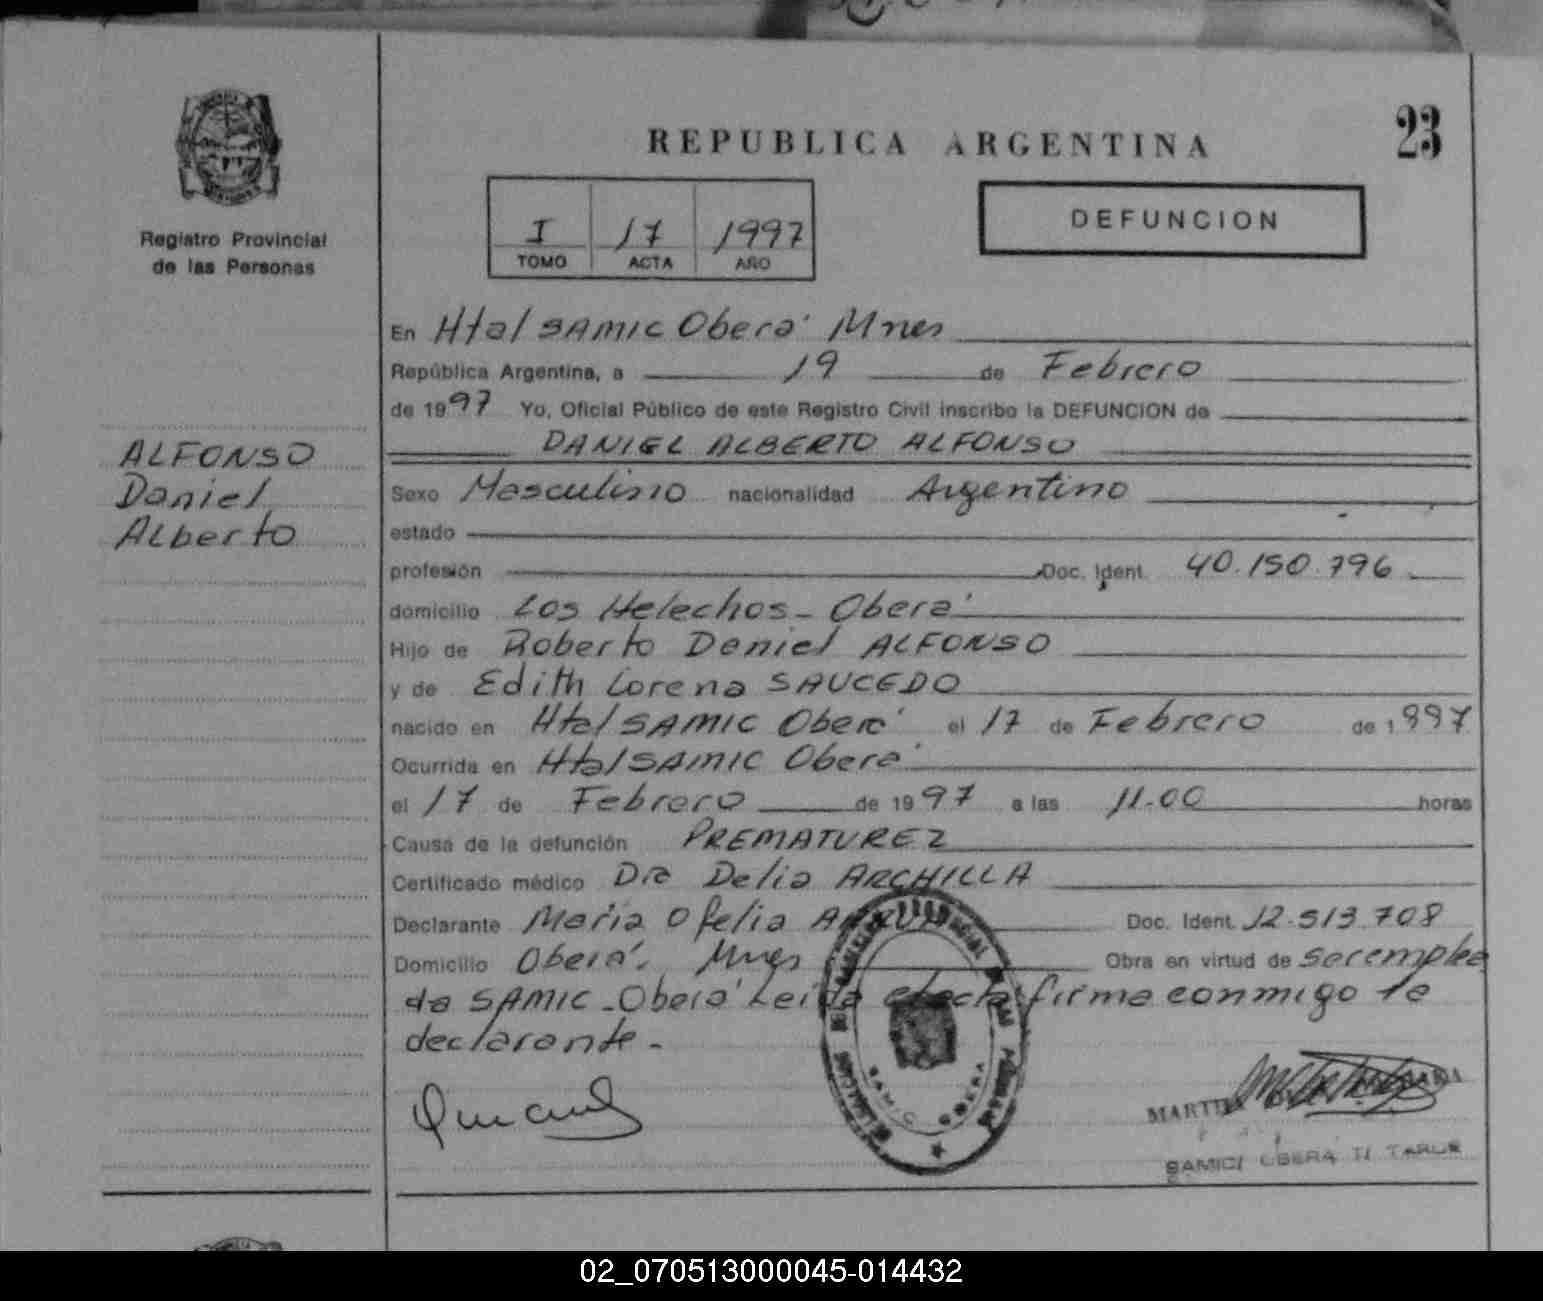 REPUBLICA ARGENTINA
23
Registro Provincial
de las Personas
I 17 1997
TOMO ACTA AÑO
DEFUNCION
ALFONSO
Daniel
Alberto
En Htal SAMIC Oberá Mnes
República Argentina, a 19 de Febrero
de 1997 Yo, Oficial Público de este Registro Civil inscribo la DEFUNCION de
DANIEL ALBERTO ALFONSO
Sexo Masculino nacionalidad Argentino
estado
profesión Doc. Ident. 40.150.796
domicilio Los Helechos - Oberá
Hijo de Roberto Daniel ALFONSO
y de Edith Lorena SAUCEDO
nacido en Htal SAMIC Oberá el 17 de Febrero de 1997
Ocurrida en Htal SAMIC Oberá
el 17 de Febrero de 1997 a las 11.00 horas
Causa de la defunción PREMATUREZ
Certificado médico Dra Delia ARCHILLA
Declarante Maria Ofelia Doc. Ident. 12.513.708
Domicilio Oberá. Mnes Obra en virtud de ser emplea
da SAMIC - Oberá Leída el acta firma conmigo la
declarante.
SAMIC OBERA
SAMIC OBERA
02_070513000045-014432